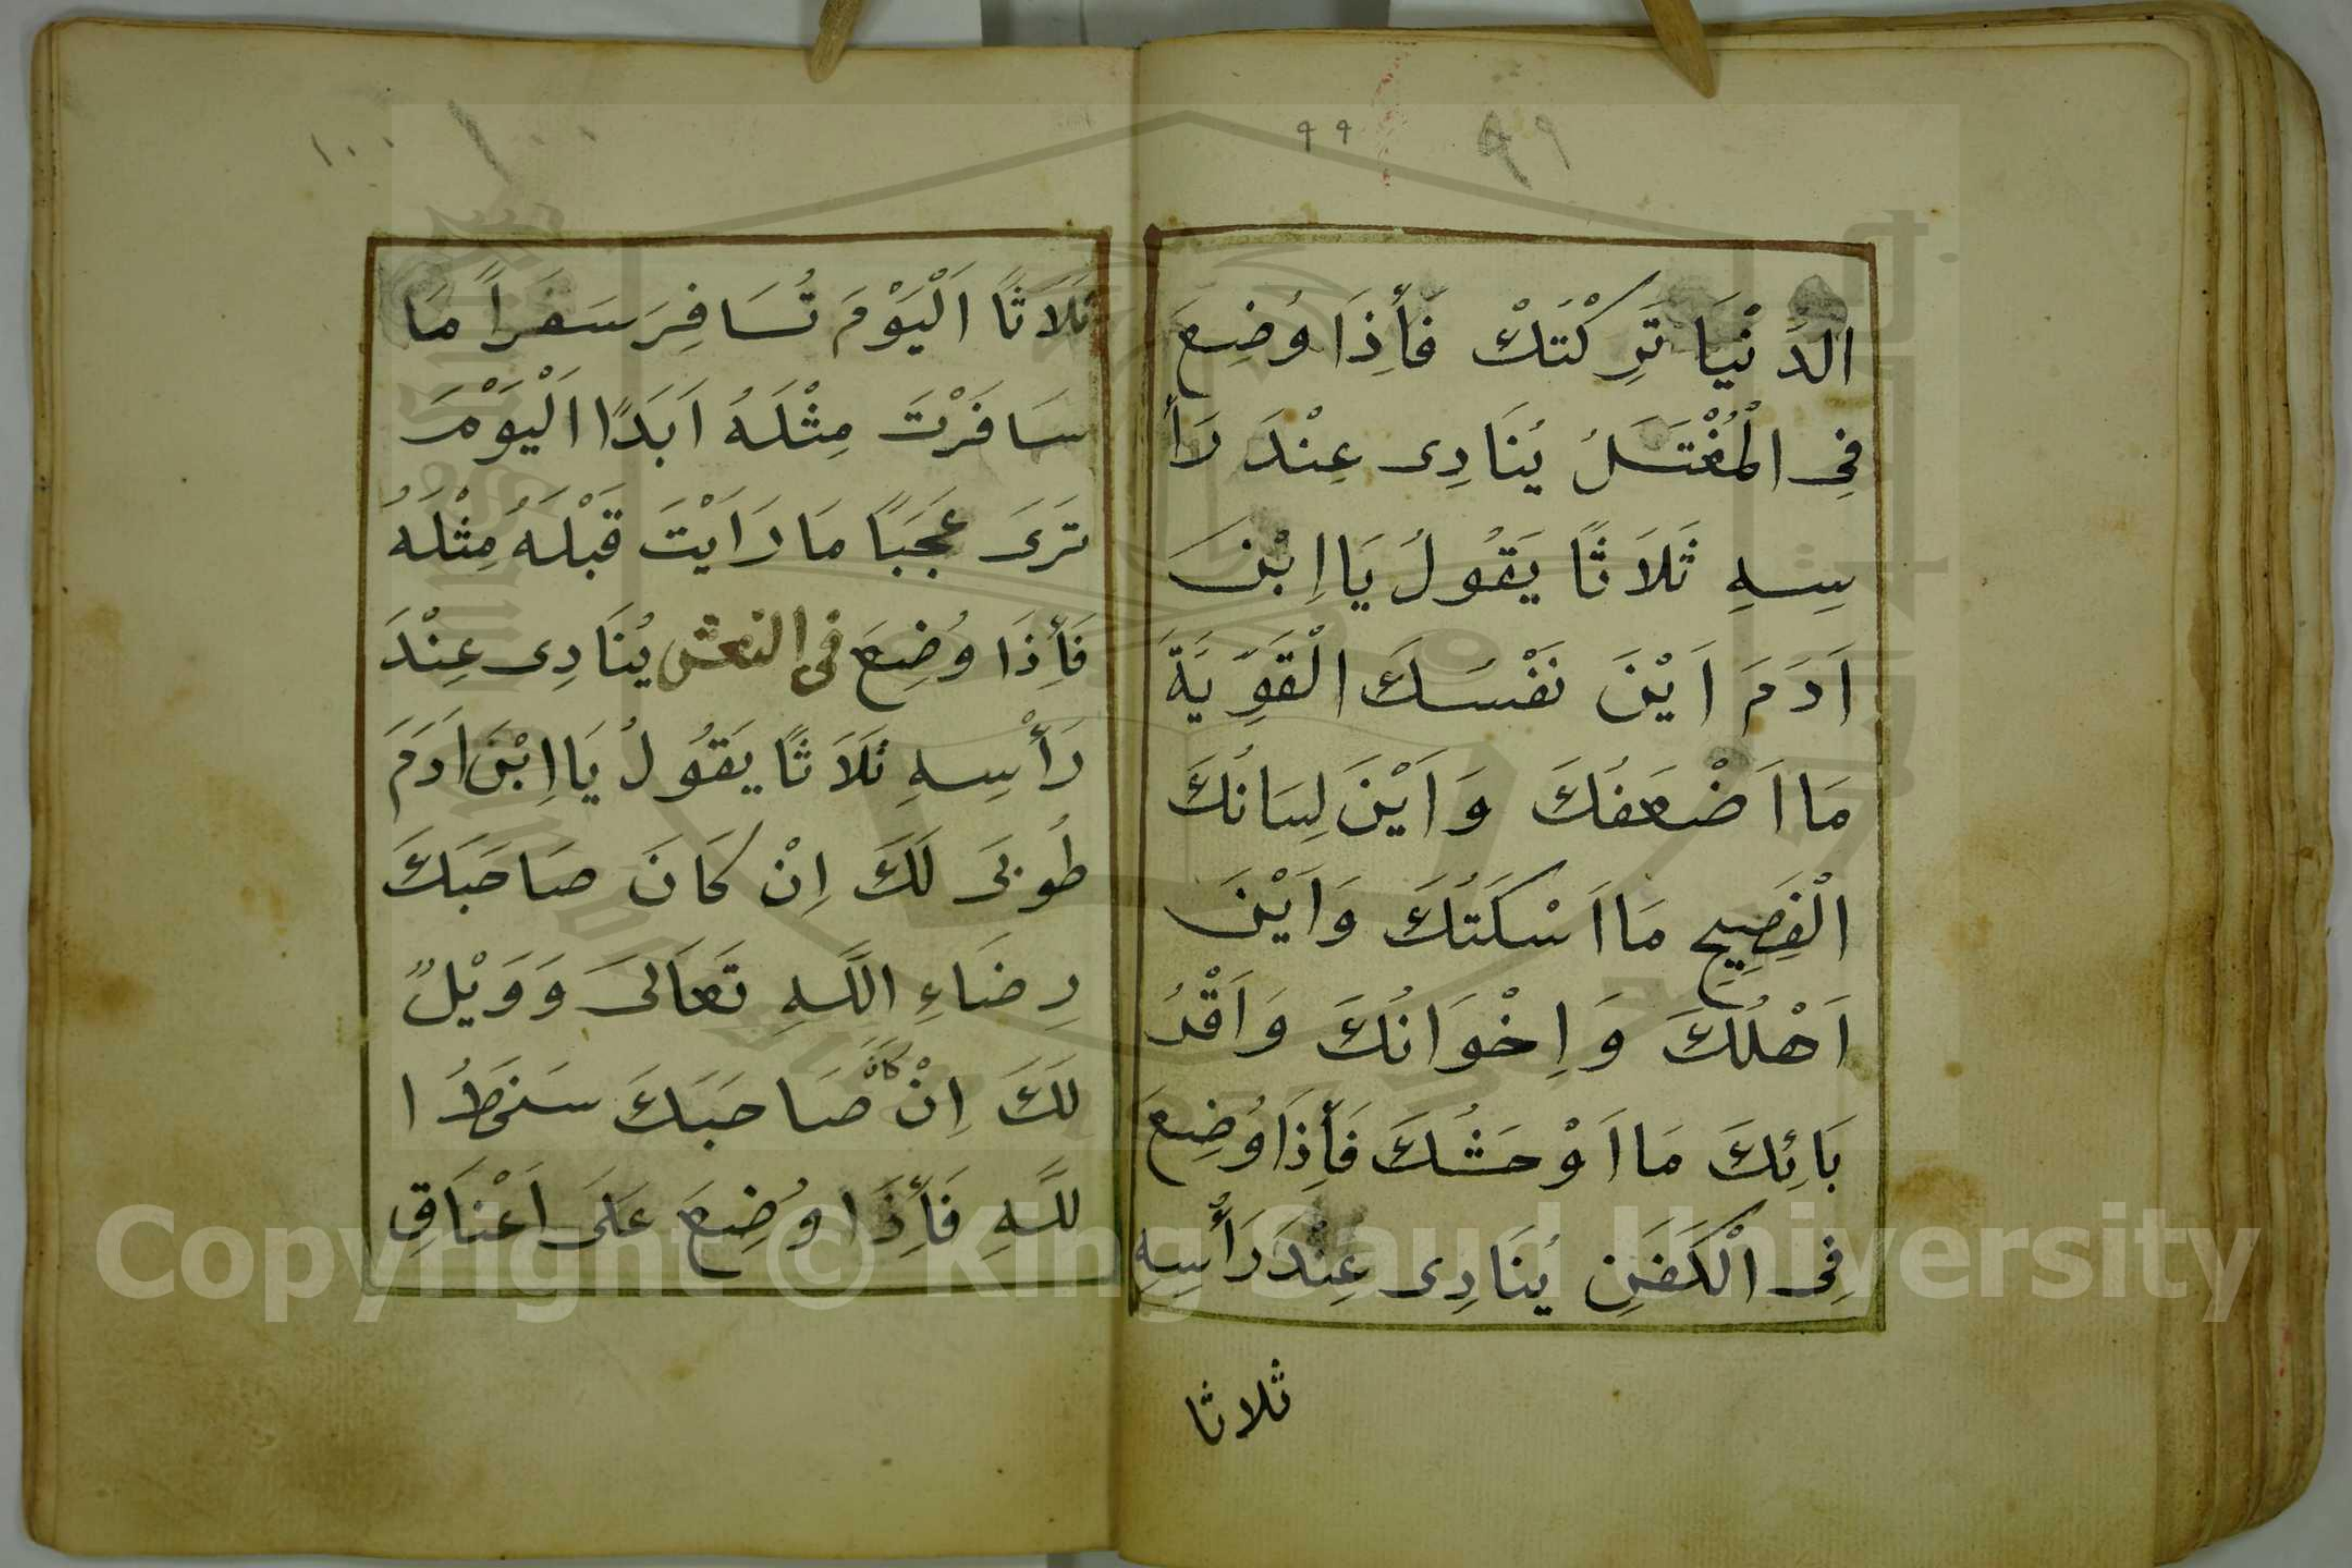 ٩٩ ٩٩
الدُّنْيَا تَرِكْتَكْ فَأِذَا وُضِعَ
فِى الْمُغْتَسَلُ يُنَادِى عِنْدَ رَأْ
سِهِ ثَلَاثًا يَقُولُ يَا اِبْنَ
اَدَمَ اَيْنَ نَفْسُكَ الْقَوِّيَةَ
مَا اَضْعَفُكَ وَاَيْنَ لِسَانُكَ
الْفَصِيحِ مَا اَسْكَتُكَ وَاَيْنَ
اَهْلُكَ وَاِخْوَانُكَ وَاَقْرُ
بَائِكَ مَا اَوْحَشُكَ فَأِذَا وُضِعَ
فِى الْكَفَنِ يُنَادِى عِنْدَ رَأْسِهِ
ثلاثا
١٠٠ ١٠٠
ثَلَاثًا اَلْيَوْمَ تُسَافِرَ سَفَراً مَا
سَافَرْتَ مِثْلَهُ اَبَدًا اَلْيَوْمَ
تَرَى عَجَبًا مَا رَاَيْتَ قَبْلَهُ مِثْلَهُ
فَأِذَا وُضِعَ فى النعش يُنَادِى عِنْدَ
رَأْسِهِ ثَلَاثًا يَقُولُ يَا اِبْنَ اَدَمَ
طُوبَى لَكَ اِنْ كَانَ صَاحَبَكَ
رِضَاءِ اللَّهِ تَعَالَى وَوَيْلٌ
لَكَ اِنْ كَانَ صَاحَبَكَ سَخَطُ ا
للَّهِ فَأِذَا وُضِعَ عَلَى اَعْنَاقِ
Copyright © King Saud University